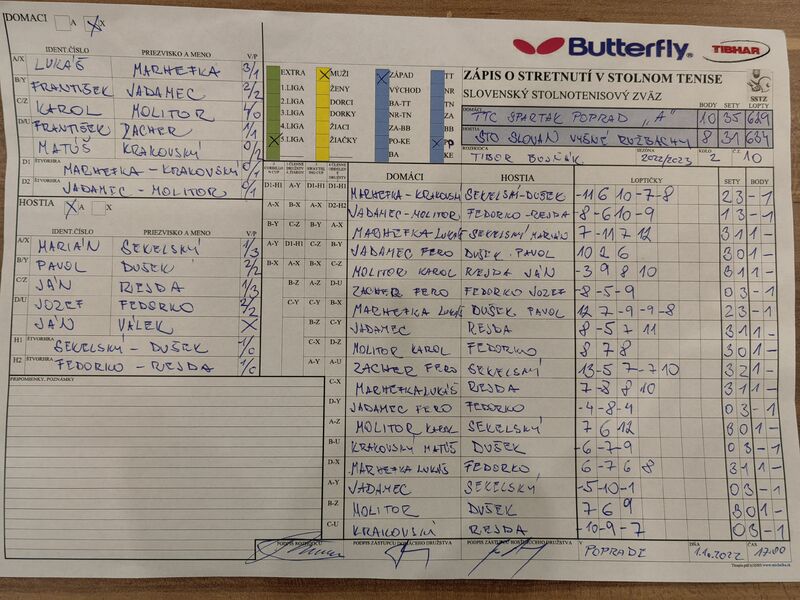 DOMÁCI A X
IDENT.ČÍSLO PRIEZVISKO A MENO V/P
A/X LUKÁŠ MARHEFKA 3/1
B/Y FRANTIŠEK JADAMEC 2/2
C/Z KAROL MOLITOR 4/0
D/U FRANTIŠEK ZACHER 1/1
MATÚŠ KRAKOVSKÝ 0/2
D1 ŠTVORHRA MARHEFKA - KRAKOVSKÝ 0/1
D2 ŠTVORHRA JADAMEC - MOLITOR 0/1
HOSTIA A X
IDENT.ČÍSLO PRIEZVISKO A MENO V/P
A/X MARIÁN SEKELSKÝ 1/3
B/Y PAVOL DUŠEK 2/2
C/Z JÁN REJDA 1/3
D/U JOZEF FEDORKO 2/2
JÁN VÁLEK X
H1 ŠTVORHRA SEKELSKÝ - DUŠEK 1/0
H2 ŠTVORHRA FEDORKO - REJDA 1/0
PRIPOMIENKY, POZNÁMKY
EXTRA
1.LIGA
2.LIGA
3.LIGA
4.LIGA
5.LIGA
MUŽI
ŽENY
DORCI
DORKY
ŽIACI
ŽIAČKY
ZÁPAD
VÝCHOD
BA-TT
NR-TN
ZA-BB
PO-KE
BA
TT
NR
TN
ZA
BB
PP
KE
Butterfly TIBHAR
ZÁPIS O STRETNUTÍ V STOLNOM TENISE
SLOVENSKÝ STOLNOTENISOVÝ ZVÄZ SSTZ
DOMÁCI BODY SETY LOPTY
TTC SPARTAK POPRAD "A" 10 35 639
HOSTIA
STO SLOVAN VYŠNÉ RUŽBACHY 8 31 634
ROZHODCA SEZÓNA KOLO Č.Z.
TIBOR 2022/2023 2 10
DOMÁCI HOSTIA LOPTIČKY SETY BODY
D1-H1 A-Y D1-H1 D1-H1 MARHEFKA - KRAKOVSKÝ SEKELSKÝ-DUŠEK -11 6 10 -7 -8 2 3 - 1
A-X B-X A-X D2-H2 JADAMEC-MOLITOR FEDORKO-REJDA -8 -6 10 -9 1 3 - 1
B-Y C-Z B-Y A-X MARHEFKA LUKÁŠ SEKELSKÝ MARIÁN 7 -11 7 12 3 1 1 -
A-Y D1-H1 C-Z B-Y JADAMEC FERO DUŠEK PAVOL 10 2 6 3 0 1 -
B-X A-X B-X C-Z MOLITOR KAROL REJDA JÁN -3 9 8 10 3 1 1 -
B-Z A-Z D-U ZACHER FERO FEDORKO JOZEF -8 -5 -9 0 3 - 1
C-Y C-Y A-Y MARHEFKA LUKÁŠ DUŠEK PAVOL 12 7 -9 -9 -8 2 3 - 1
B-Z B-Z JADAMEC REJDA 8 -5 7 11 3 1 1 -
C-X C-U MOLITOR KAROL FEDORKO 8 7 8 3 0 1 -
A-Y D-X ZACHER FERO SEKELSKÝ -13 -5 7 -7 10 3 2 1 -
MARHEFKA LUKÁŠ REJDA 7 -8 8 10 3 1 1 -
D-Y JADAMEC FERO FEDORKO -4 -8 -4 0 3 - 1
A-Z MOLITOR KAROL SEKELSKÝ 7 6 12 3 0 1 -
B-U KRAKOVSKÝ MATÚŠ DUŠEK -6 -7 -9 0 3 - 1
D-X MARHEFKA LUKÁŠ FEDORKO 6 -7 6 8 3 1 1 -
A-Y JADAMEC SEKELSKÝ -5 -10 -1 0 3 - 1
B-Z MOLITOR DUŠEK 7 6 9 3 0 1 -
C-U KRAKOVSKÝ REJDA -10 -9 -7 0 3 - 1
PODPIS ROZHODCU PODPIS ZÁSTUPCU DOMÁCEHO DRUŽSTVA PODPIS ZÁSTUPCU HOSŤUJÚCEHO DRUŽSTVA V POPRADE DŇA 1.10.2022 ČAS 17:00